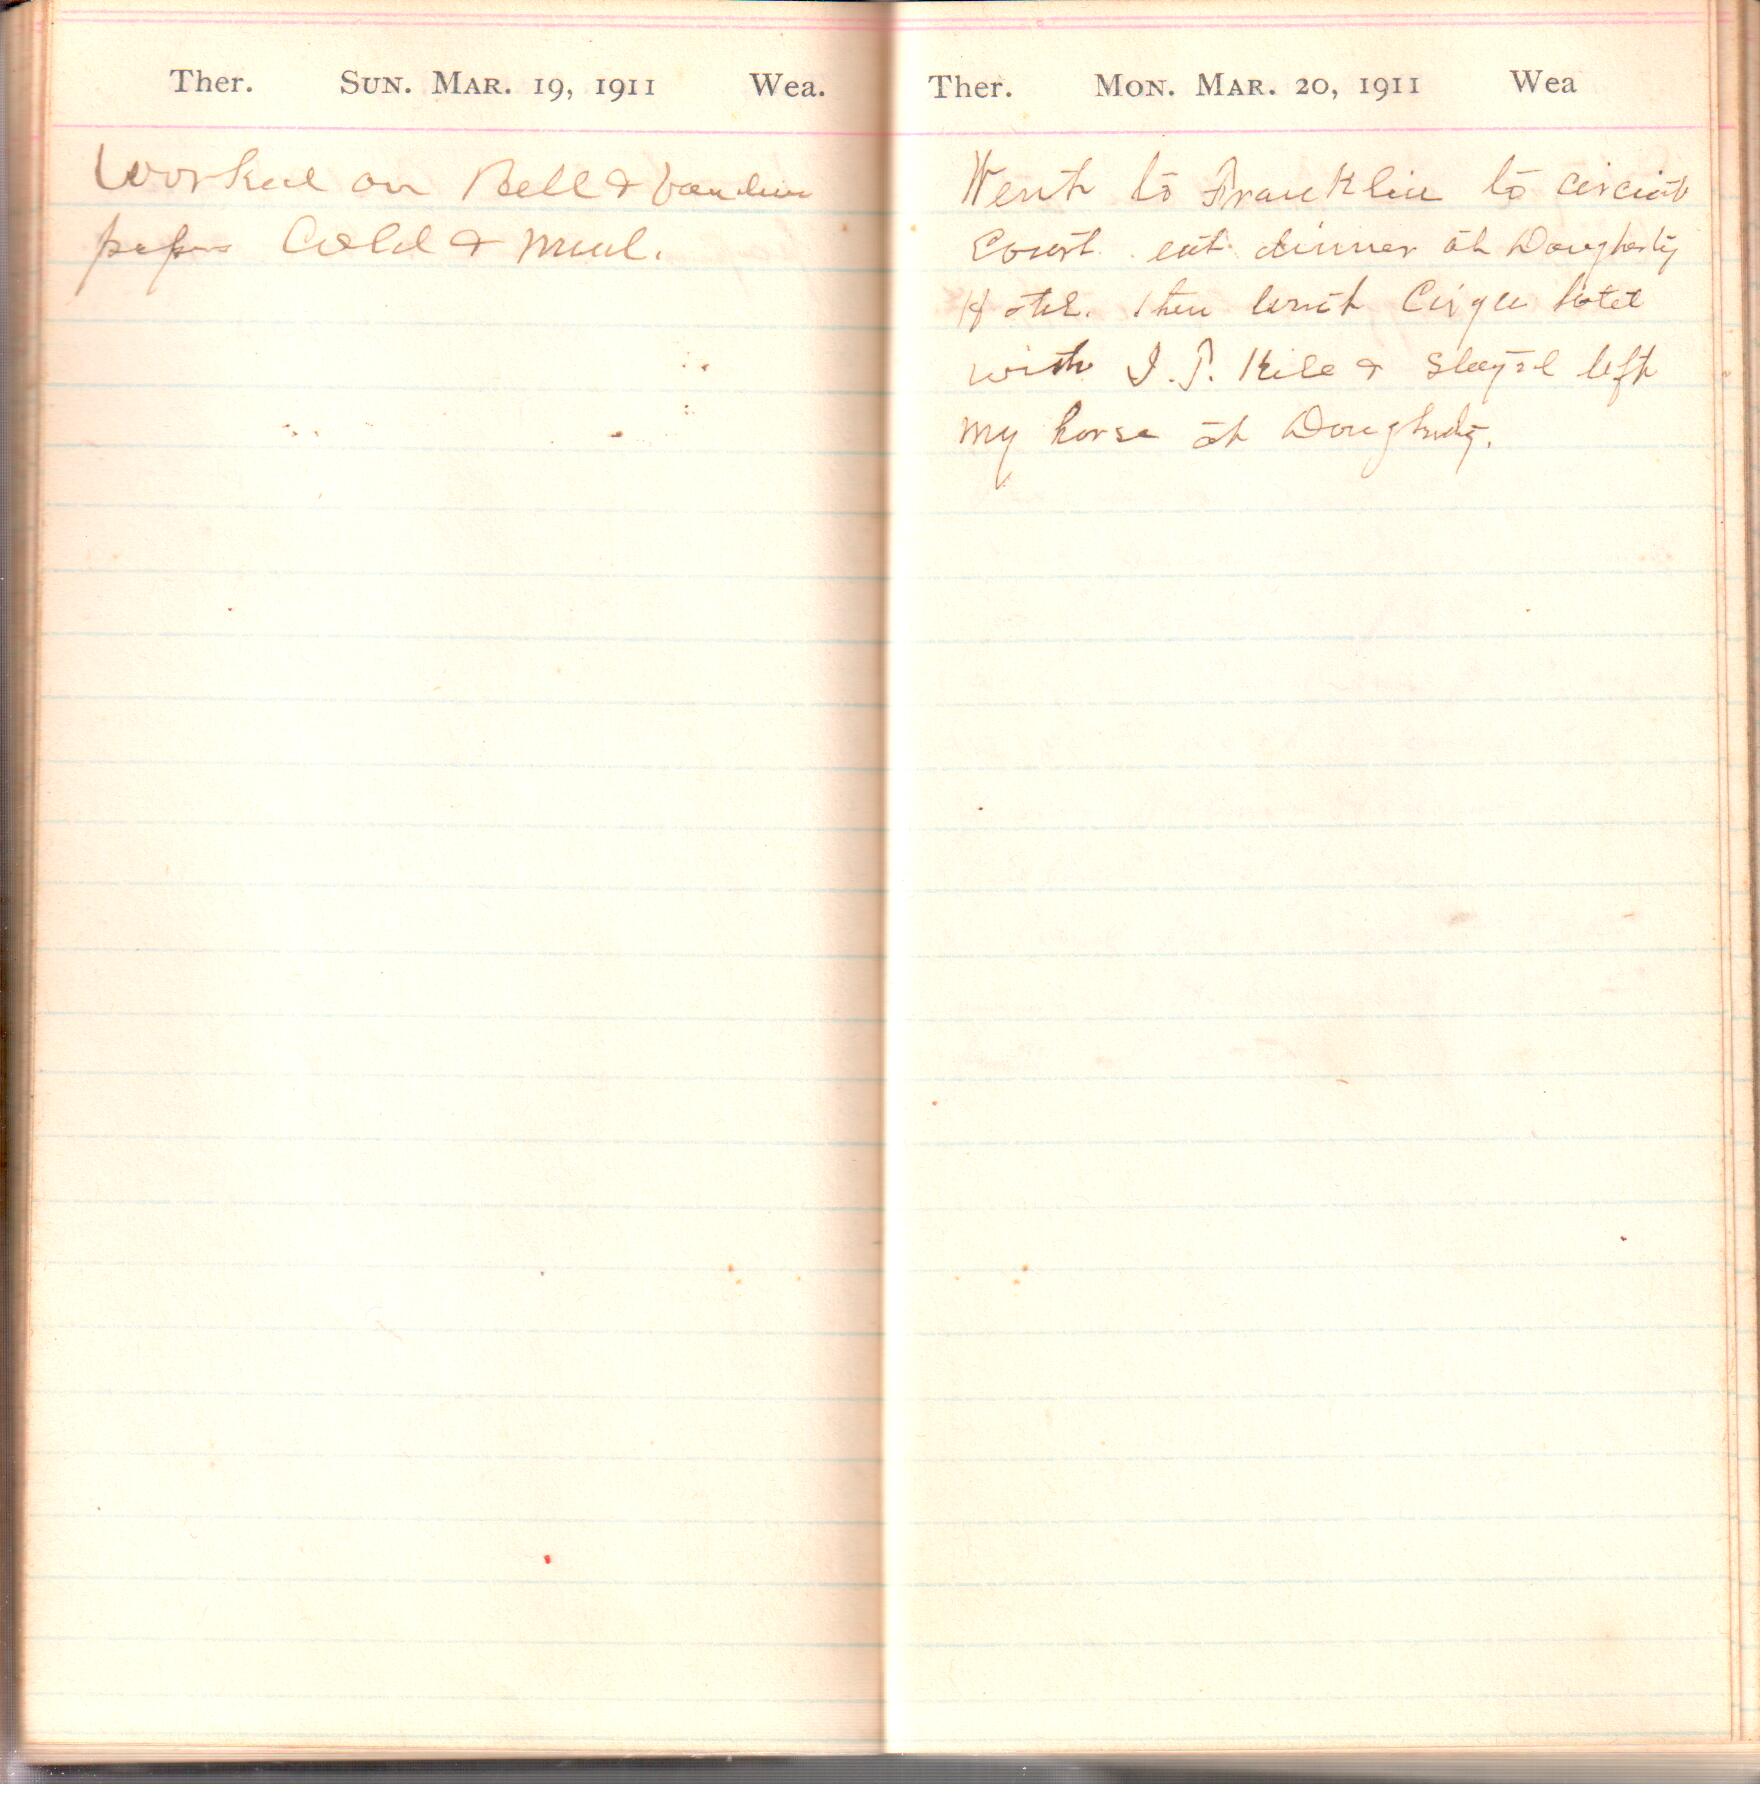 Ther. Sun. Mar. 19, 1911 Wea.
Worked on Bell &
papers Cold & Mud.
Ther. Mon. Mar. 20, 1911 Wea
Went to Franklin to circuit
Court. eat dinner at Dougherty
Hotel. then went hotel
with I. P. Kile & left
my horse at Dougherty.